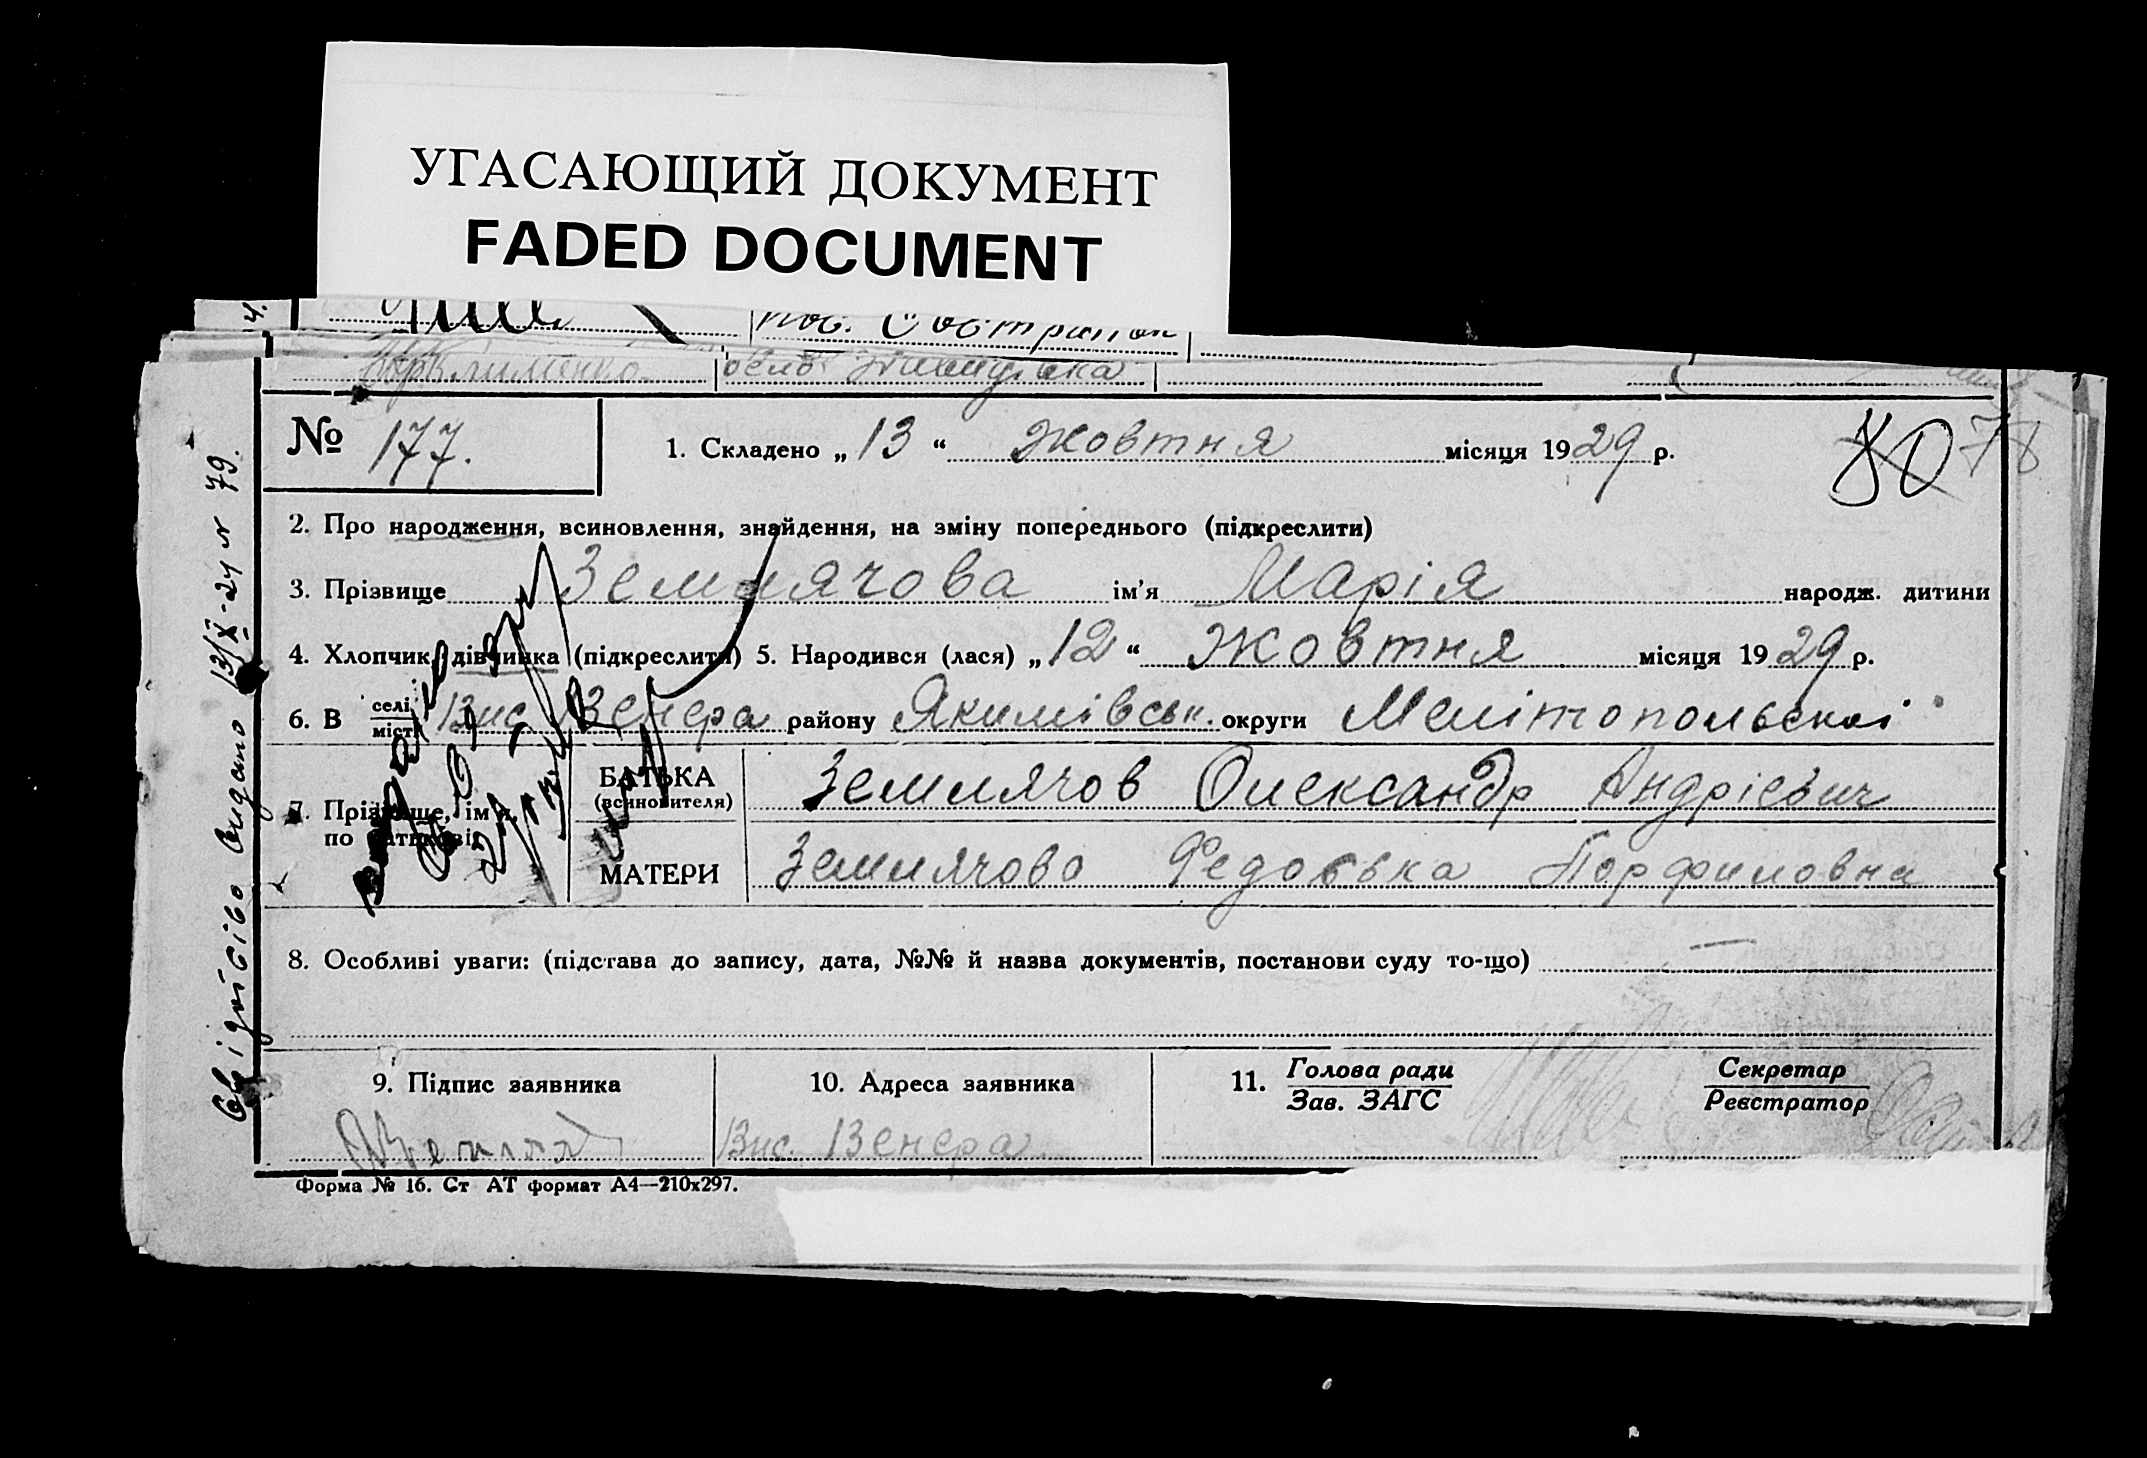 УГАСАЮЩИЙ ДОКУМЕНТ
FADED DOCUMENT
№ 177.
1. Складено „ 13 “ жовтня місяця 1929 р.
80 78
2. Про народження, всиновлення, знайдення, на зміну попереднього (підкреслити)
3. Прізвище Землячова ім'я Марія народж. дитини
4. Хлопчик, дівчинка (підкреслити) 5. Народився (лася) „ 12 “ жовтня місяця 1929 р.
6. В селі міст Вис. Венера району Якимівськ. округи Мелітопольскаі
7. Прізвище, ім'я, по батькові
БАТЬКА (всиновителя) Землячов Олександр Андрієвич
МАТЕРИ Землячова Федоська Порфиловна
8. Особливі уваги: (підстава до запису, дата, №№ й назва документів, постанови суду то-що) —
9. Підпис заявника
10. Адреса заявника
Вис. Венера
11. Голова ради
Зав. ЗАГС
Секретар
Реєстратор
Форма № 16. Ст АТ формат А4—210х297.
13/X-29 № 79.